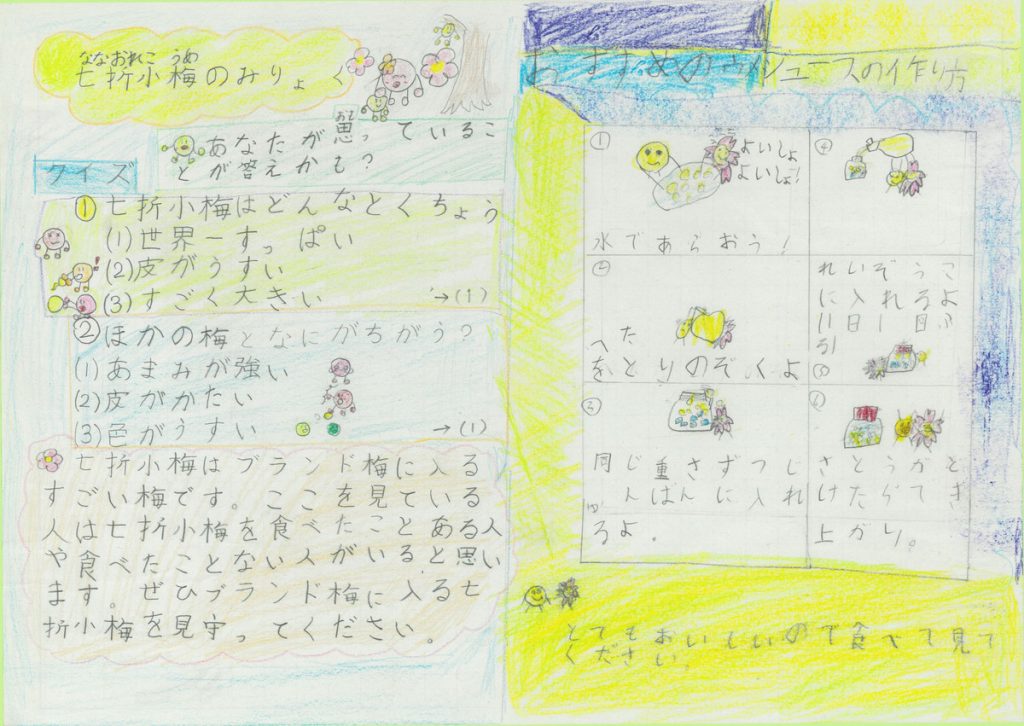 ななおれこ うめ
七折小梅のみりょく
あなたが思っているこ
おも
とが答えかも?
クイズ
① 七折小梅はどんなとくちょう
(1)世界一すっぱい
(2)皮がうすい
(3)すごく大きい →(1)
② ほかの梅となにがちがう?
(1)あまみが強い
(2)皮がかたい
(3)色がうすい →(1)
七折小梅はブランド梅に入る
すごい梅です。ここを見ている
人は七折小梅を食べたことある人
や食べたことない人がいると思い
ます。ぜひブランド梅に入る七
折小梅を見守ってください。
おすすめのウメジュースの作り方
①
よいしょ
よいしょ!
水であらおう!
②
へた
をとりのぞくよ
③
同じ重さずつじ
んばんに入れ
るよ。
④
れいぞうこ
に入れるよ
(1日1日ぶ
る)
⑤
⑥
さとうがと
けたらでき
上がり。
とてもおいしいので食べて見て
ください。